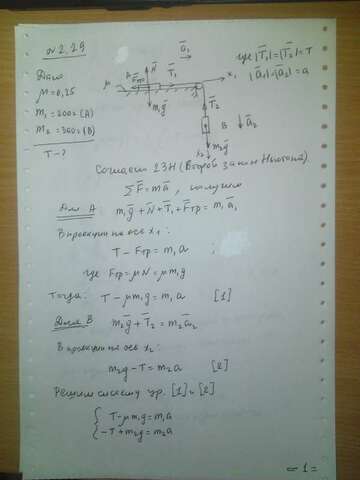 № 2.29
Дано
μ = 0,25
m₁ = 200г (A)
m₂ = 300г (B)
T - ?
ā₁
N̄
A F̄тр T̄₁
μ x₁
m₁ḡ
T̄₂
B ā₂
m₂ḡ
x₂
где |T̄₁|=|T̄₂|=T
|ā₁|=|ā₂|=a
Согласно 2ЗН (Второй закон Ньютона)
ΣF̄ = mā, получим
Для A m₁ḡ + N̄ + T̄₁ + F̄тр = m₁ā₁
В проекции на ось x₁:
T - Fтр = m₁a ;
где Fтр = μN = μm₁g
Тогда: T - μm₁g = m₁a [1]
Для B m₂ḡ + T̄₂ = m₂ā₂
В проекции на ось x₂:
m₂g - T = m₂a [2]
Решим систему ур. [1] и [2]
{ T - μm₁g = m₁a
-T + m₂g = m₂a
= 1 =